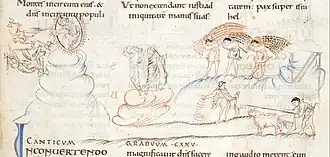 Montes incircuitu eius. &
dñs incircuitu populi
Ut non extendant iusti ad
iniquitate manus suas.
catem; pax super isra
hel
CANTICUM GRADUUM CXXV.
INCONUERTENDO
magnificauit dñs facere